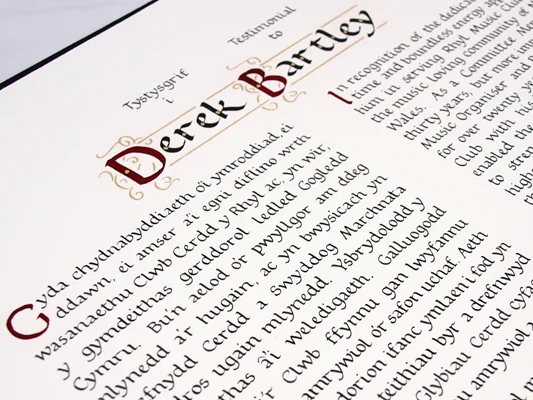 Tystysgrif
i
Testimonial
to
Derek Bartley
Gyda chydnabyddiaeth o'i ymroddiad, ei
ddawn, ei amser a'i egni diflino wrth
wasanaethu Clwb Cerdd y Rhyl ac, yn wir,
y gymdeithas gerddorol ledled Gogledd
Cymru. Bu'n aelod o'r pwyllgor am ddeg
mlynedd a'r hugain, ac yn bwysicach yn
Drefnydd Cerdd a Swyddog Marchnata
dros ugain mlynedd. Ysbrydolodd y
gymdeithas â'i weledigaeth. Galluogodd
i'r Clwb ffynnu gan lwyfannu
amrywiol o'r safon uchaf. Aeth
ifanc ymlaen i fod yn
teithiau byr a drefnwyd
Glybiau Cerdd
amrywiol
In recognition of the
time and boundless energy
him in serving Rhyl Music Club
the music loving community of
Wales. As a Committee
thirty years, but more
Music Organiser and
for over twenty
Club with his
enabled the
to